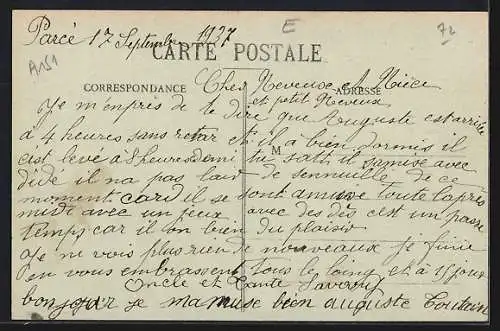 Parcé 17 Septembre 1927 E 72
A151
CARTE POSTALE
CORRESPONDANCE ADRESSE
Cher Neveuse et Nièce
et petit Neveux
Je m'enprès de te dire que Auguste est arrivée
à 4 heures sans retar et il à bien dormis il
c'ist levé a 8 heures demi
M
didé il na pas lair de sennuille de ce
moment card il se sont amuse toute l'après
midi avec un jeux avec des dés c'est un passe
temps car il on bien du plaisir
Je ne vois plus rien de nouveaux je finie
en vous embrassent tous le loing et à 15 jours
Oncle et Tante
bonjour je mamuse bien auguste Toutain